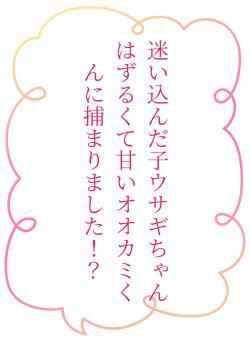 迷い込んだ子ウサギちゃん
はずるくて甘いオオカミく
んに捕まりました！？